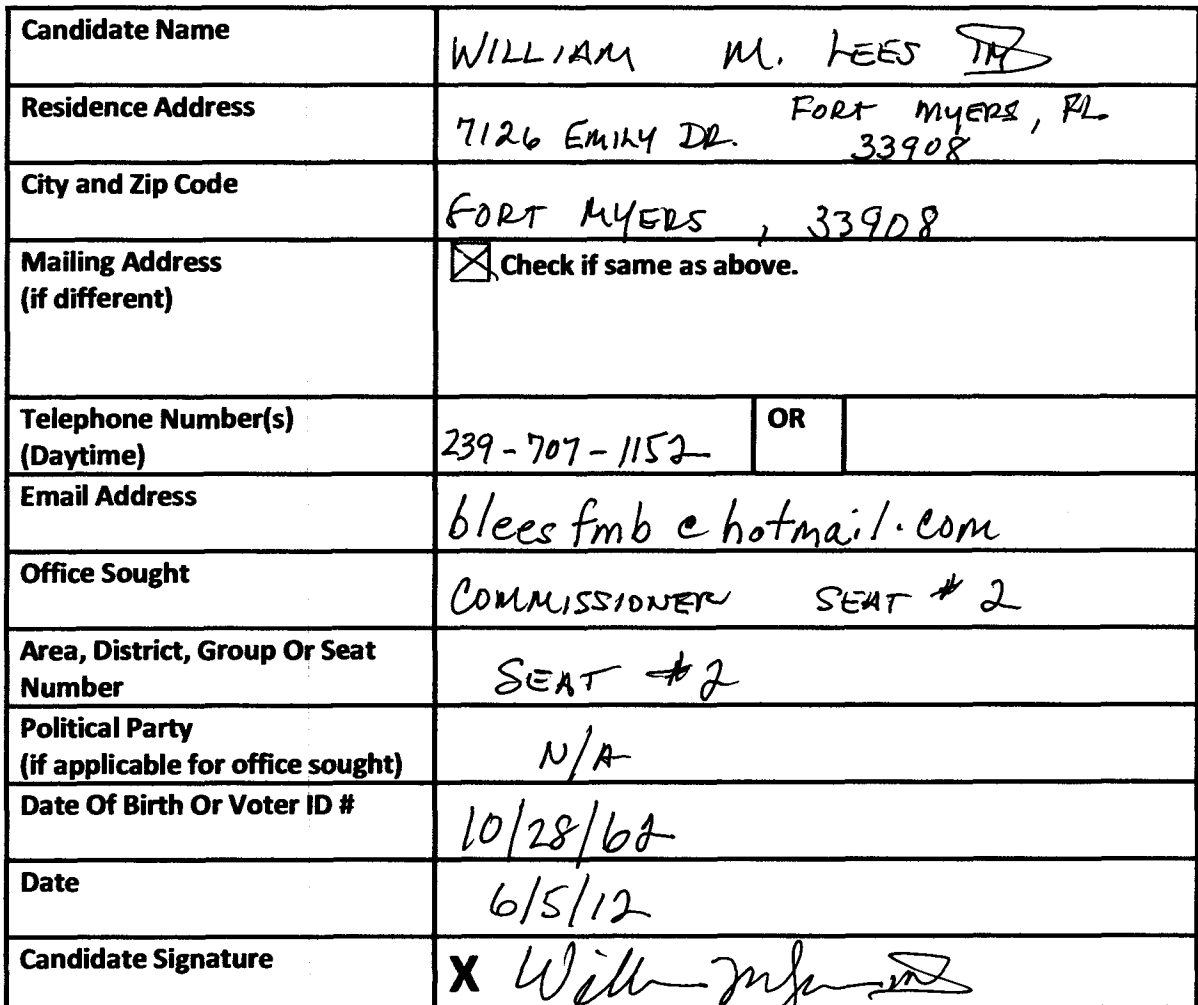 Candidate Name WILLIAM M. LEES III
Residence Address 7126 EMILY DR. FORT MYERS, FL.
33908
City and Zip Code FORT MYERS, 33908
Mailing Address Check if same as above.
(if different)
Telephone Number(s) OR
(Daytime) 239-707-1152
Email Address bleesfmb@hotmail.com
Office Sought COMMISSIONER SEAT # 2
Area, District, Group Or Seat
Number SEAT #2
Political Party
(if applicable for office sought) N/A
Date Of Birth Or Voter ID # 10/28/62
Date 6/5/12
Candidate Signature X